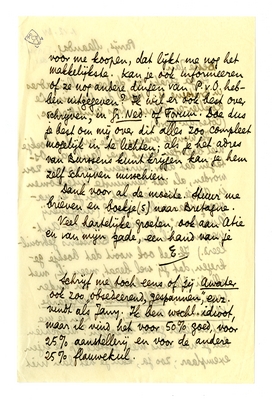 voor me koopen, dat lijkt me nog het
makkelijkste. Kan je ook informeeren
of ze nog andere dingen van P.v.O. heb-
ben uitgegeven? Ik wil er ook best over
schrijven, in Gr. Ned. of Forum. Doe dus
je best om mij over dit alles zoo compleet
mogelijk in te lichten; als je het adres
van Burssens kunt krijgen kan je hem
zelf schrijven misschien.
Dank voor al de moeite. Stuur me
brieven en boekje(s) naar Bretagne.
Veel hartelijke groeten, ook aan Atie
en van mijn gade, een hand van je
E.
Schrijf me toch eens of jij Awater
ook zoo „obsedeerend, gespannen", enz.
vindt als Jany. Ik ben wschl. idioot,
maar ik vind het voor 50% goed, voor
25% aanstellerij en voor de andere
25% flauwekul.